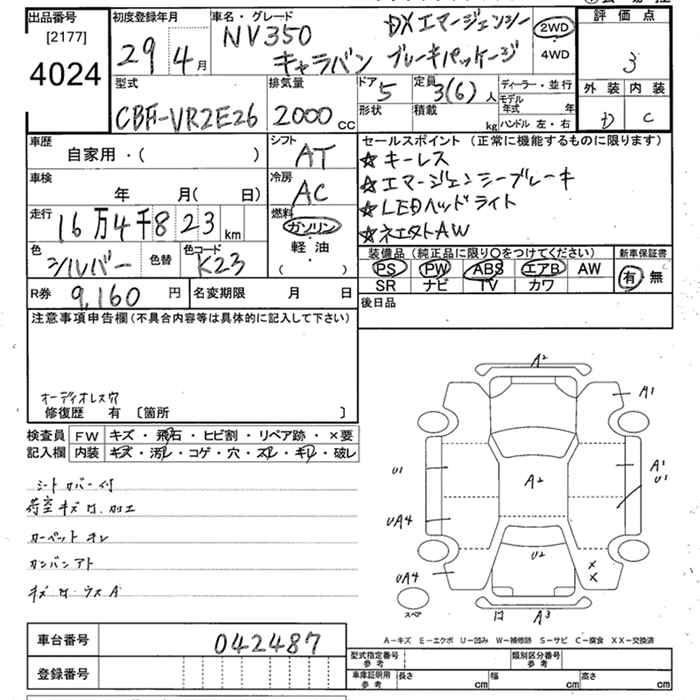 出品番号
[2177]
4024
初度登録年月
29 4月
車名・グレード
NV350 DXエマージェンシー
キャラバン ブレーキパッケージ
2WD
4WD
評価点
3
型式
CBF-VR2E26
排気量
2000 cc
ドア
5
形状
定員
3(6)人
積載 kg
ディーラー・並行
モデル年式 年
ハンドル 左・右
外装 内装
D C
車歴
自家用・( )
シフト
AT
車検
年 月( 日)
冷房
AC
走行
16万4千823 km
燃料
ガソリン
軽・油
( )
色
シルバー
色替
色コード
K23
R券 9,160 円
名変期限 月 日
セールスポイント(正常に機能するものに限ります)
☆キーレス
☆エマージェンシーブレーキ
☆LEDヘッドライト
☆ネエストAW
装備品(純正品に限り○をつけてください)
PS PW ABS エアB AW
SR ナビ TV カワ
新車保証書
有 無
後日品
注意事項申告欄(不具合内容等は具体的に記入して下さい)
オーディオレス穴
修復歴 有 〔箇所 〕
検査員 記入欄
FW キズ・飛石・ヒビ割・リペア跡・×要
内装 キズ・汚レ・コゲ・穴・スレ・キレ・破レ
シートカバー付
荷室キズ凹、加工
カーペットオレ
カンバンアト
キズ凹ウスA
A2
A1
U1
A2
A1
U1
UA4
U2
UA4
×
×
スペア
凹
A3
A−キズ E−エクボ U−凹み W−補修跡 S−サビ C−腐食 XX−交換済
車台番号 042487
登録番号
型式指定番号 参考
類別区分番号 参考
車庫証明用 参考
長さ cm 幅 cm 高さ cm